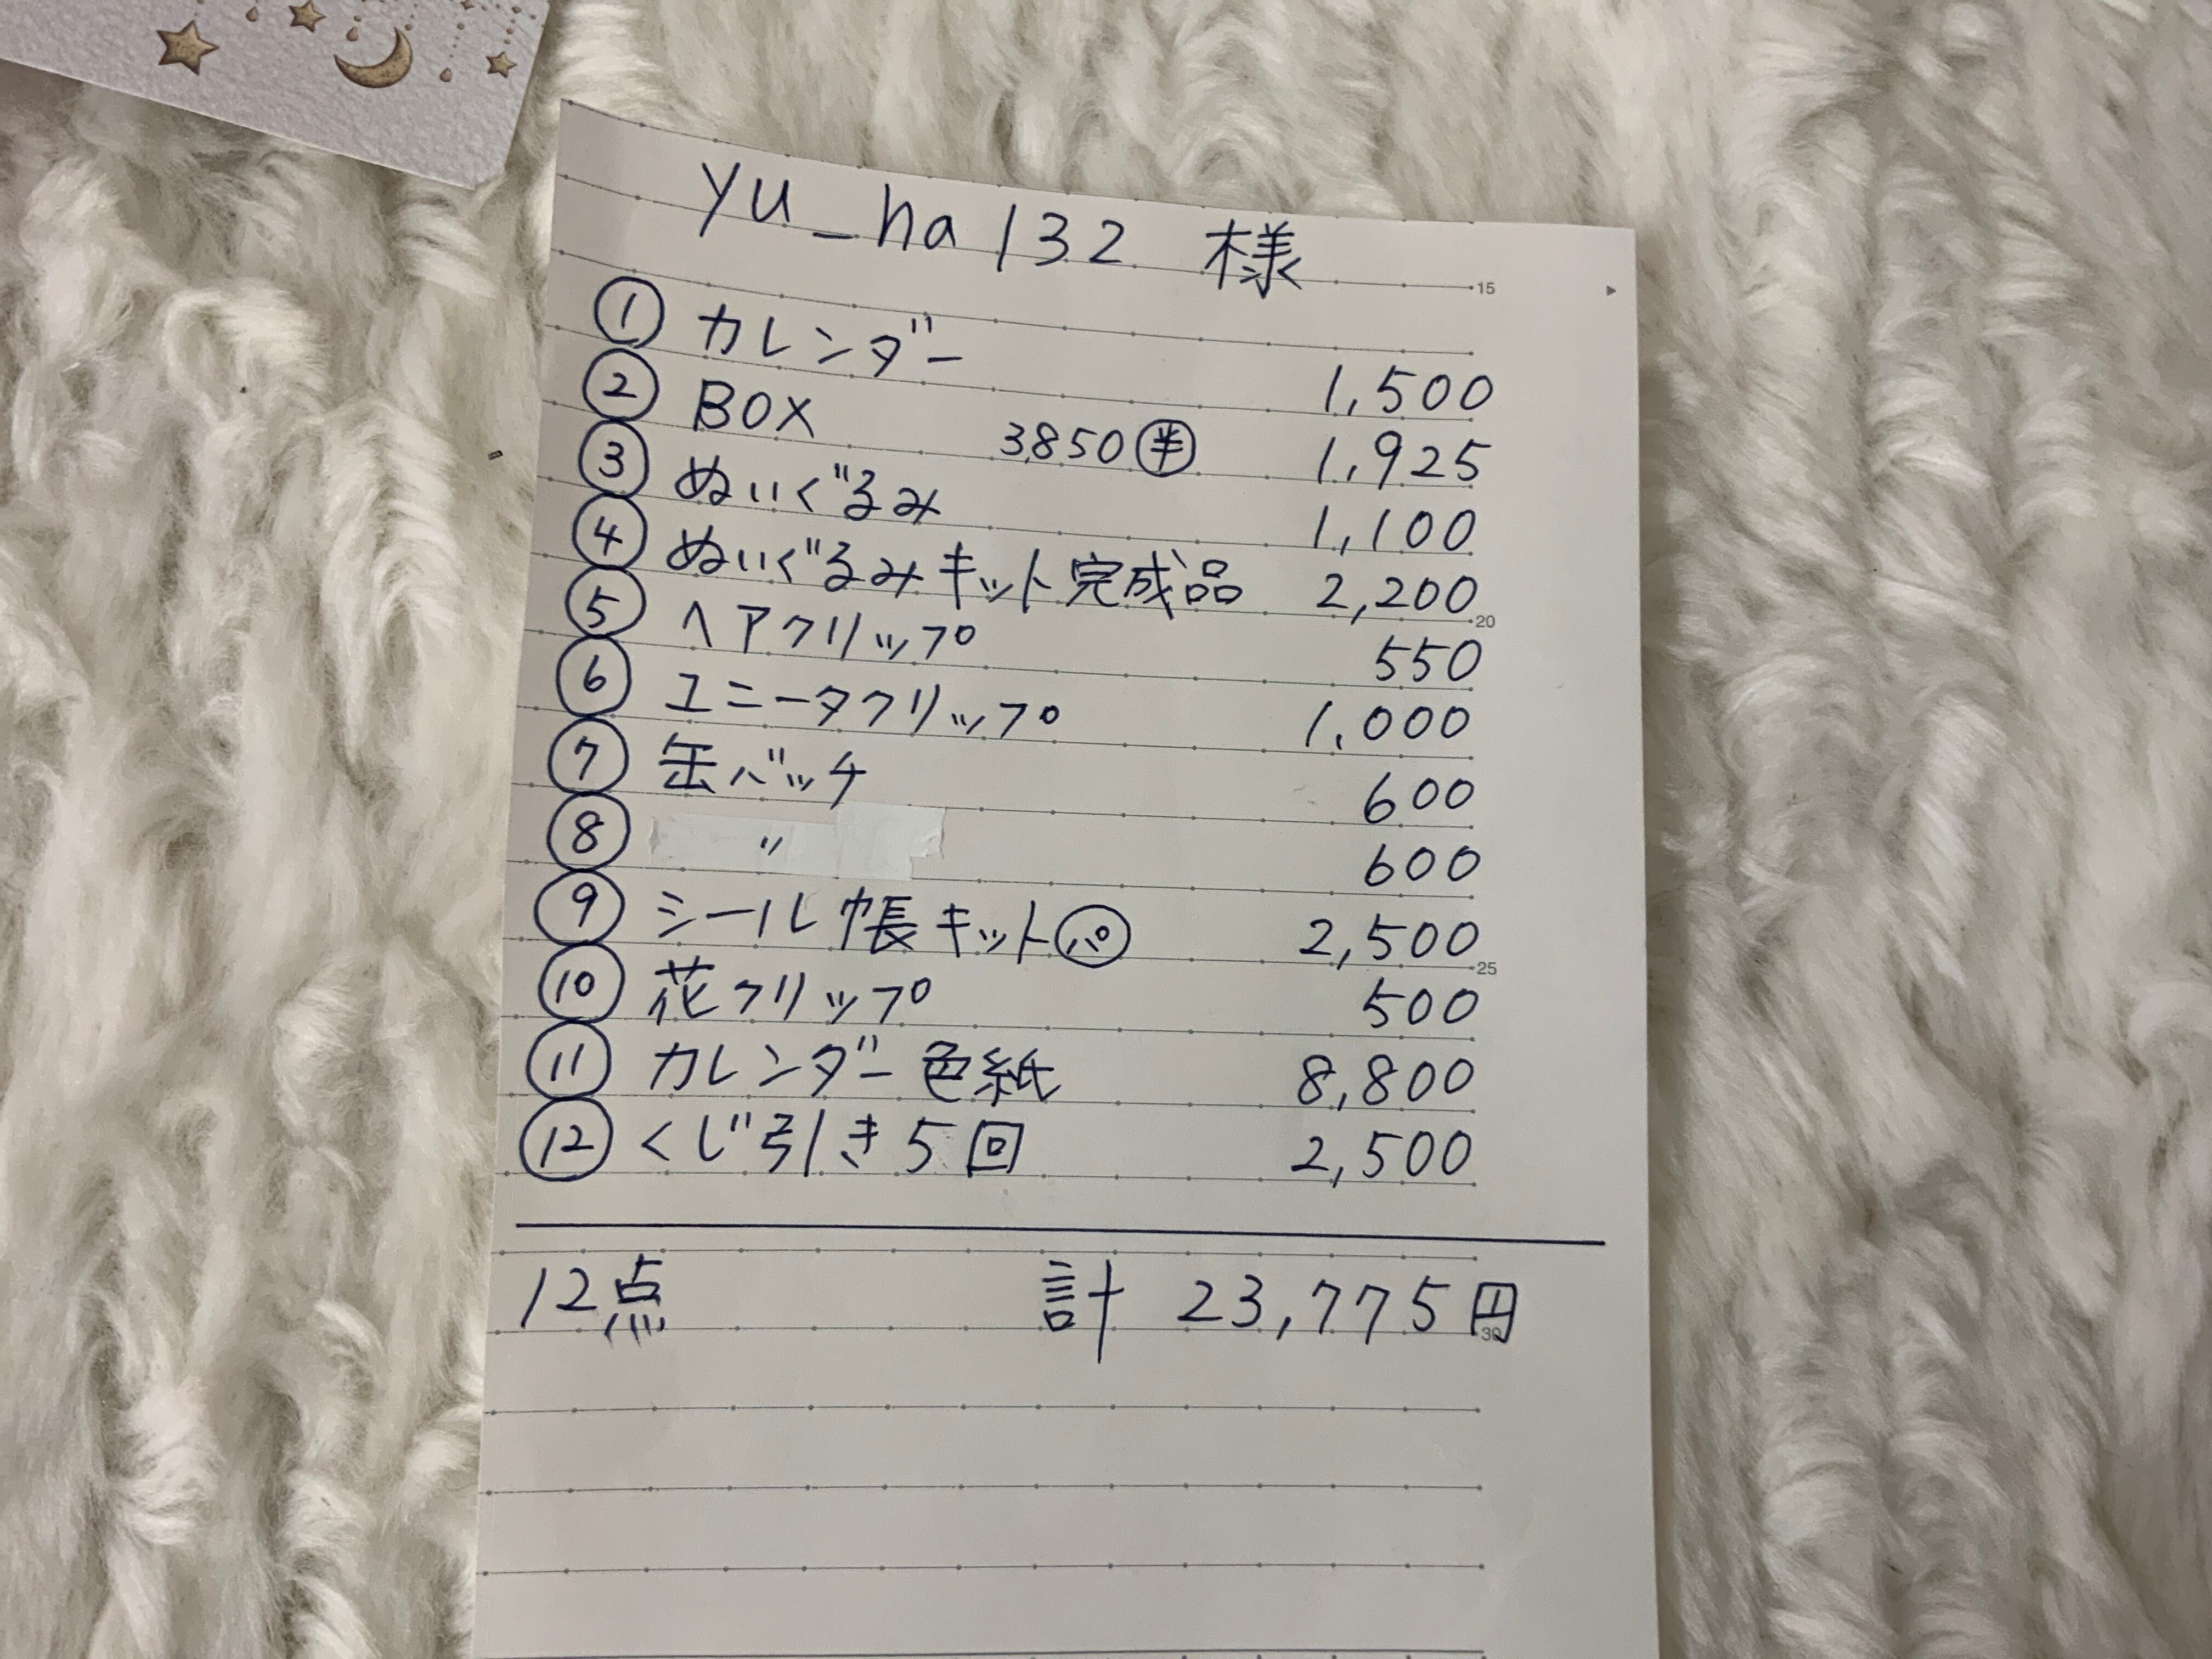 yu_ha132 様
15
① カレンダー 1,500
② BOX 3,850 ㊥ 1,925
③ ぬいぐるみ 1,100
④ ぬいぐるみキット完成品 2,200
20
⑤ ヘアクリップ 550
⑥ ユニータクリップ 1,000
⑦ 缶バッチ 600
⑧ 〃 600
⑨ シール帳キット パ 2,500
25
⑩ 花クリップ 500
⑪ カレンダー色紙 8,800
⑫ くじ引き5回 2,500
12点 計 23,775円
30